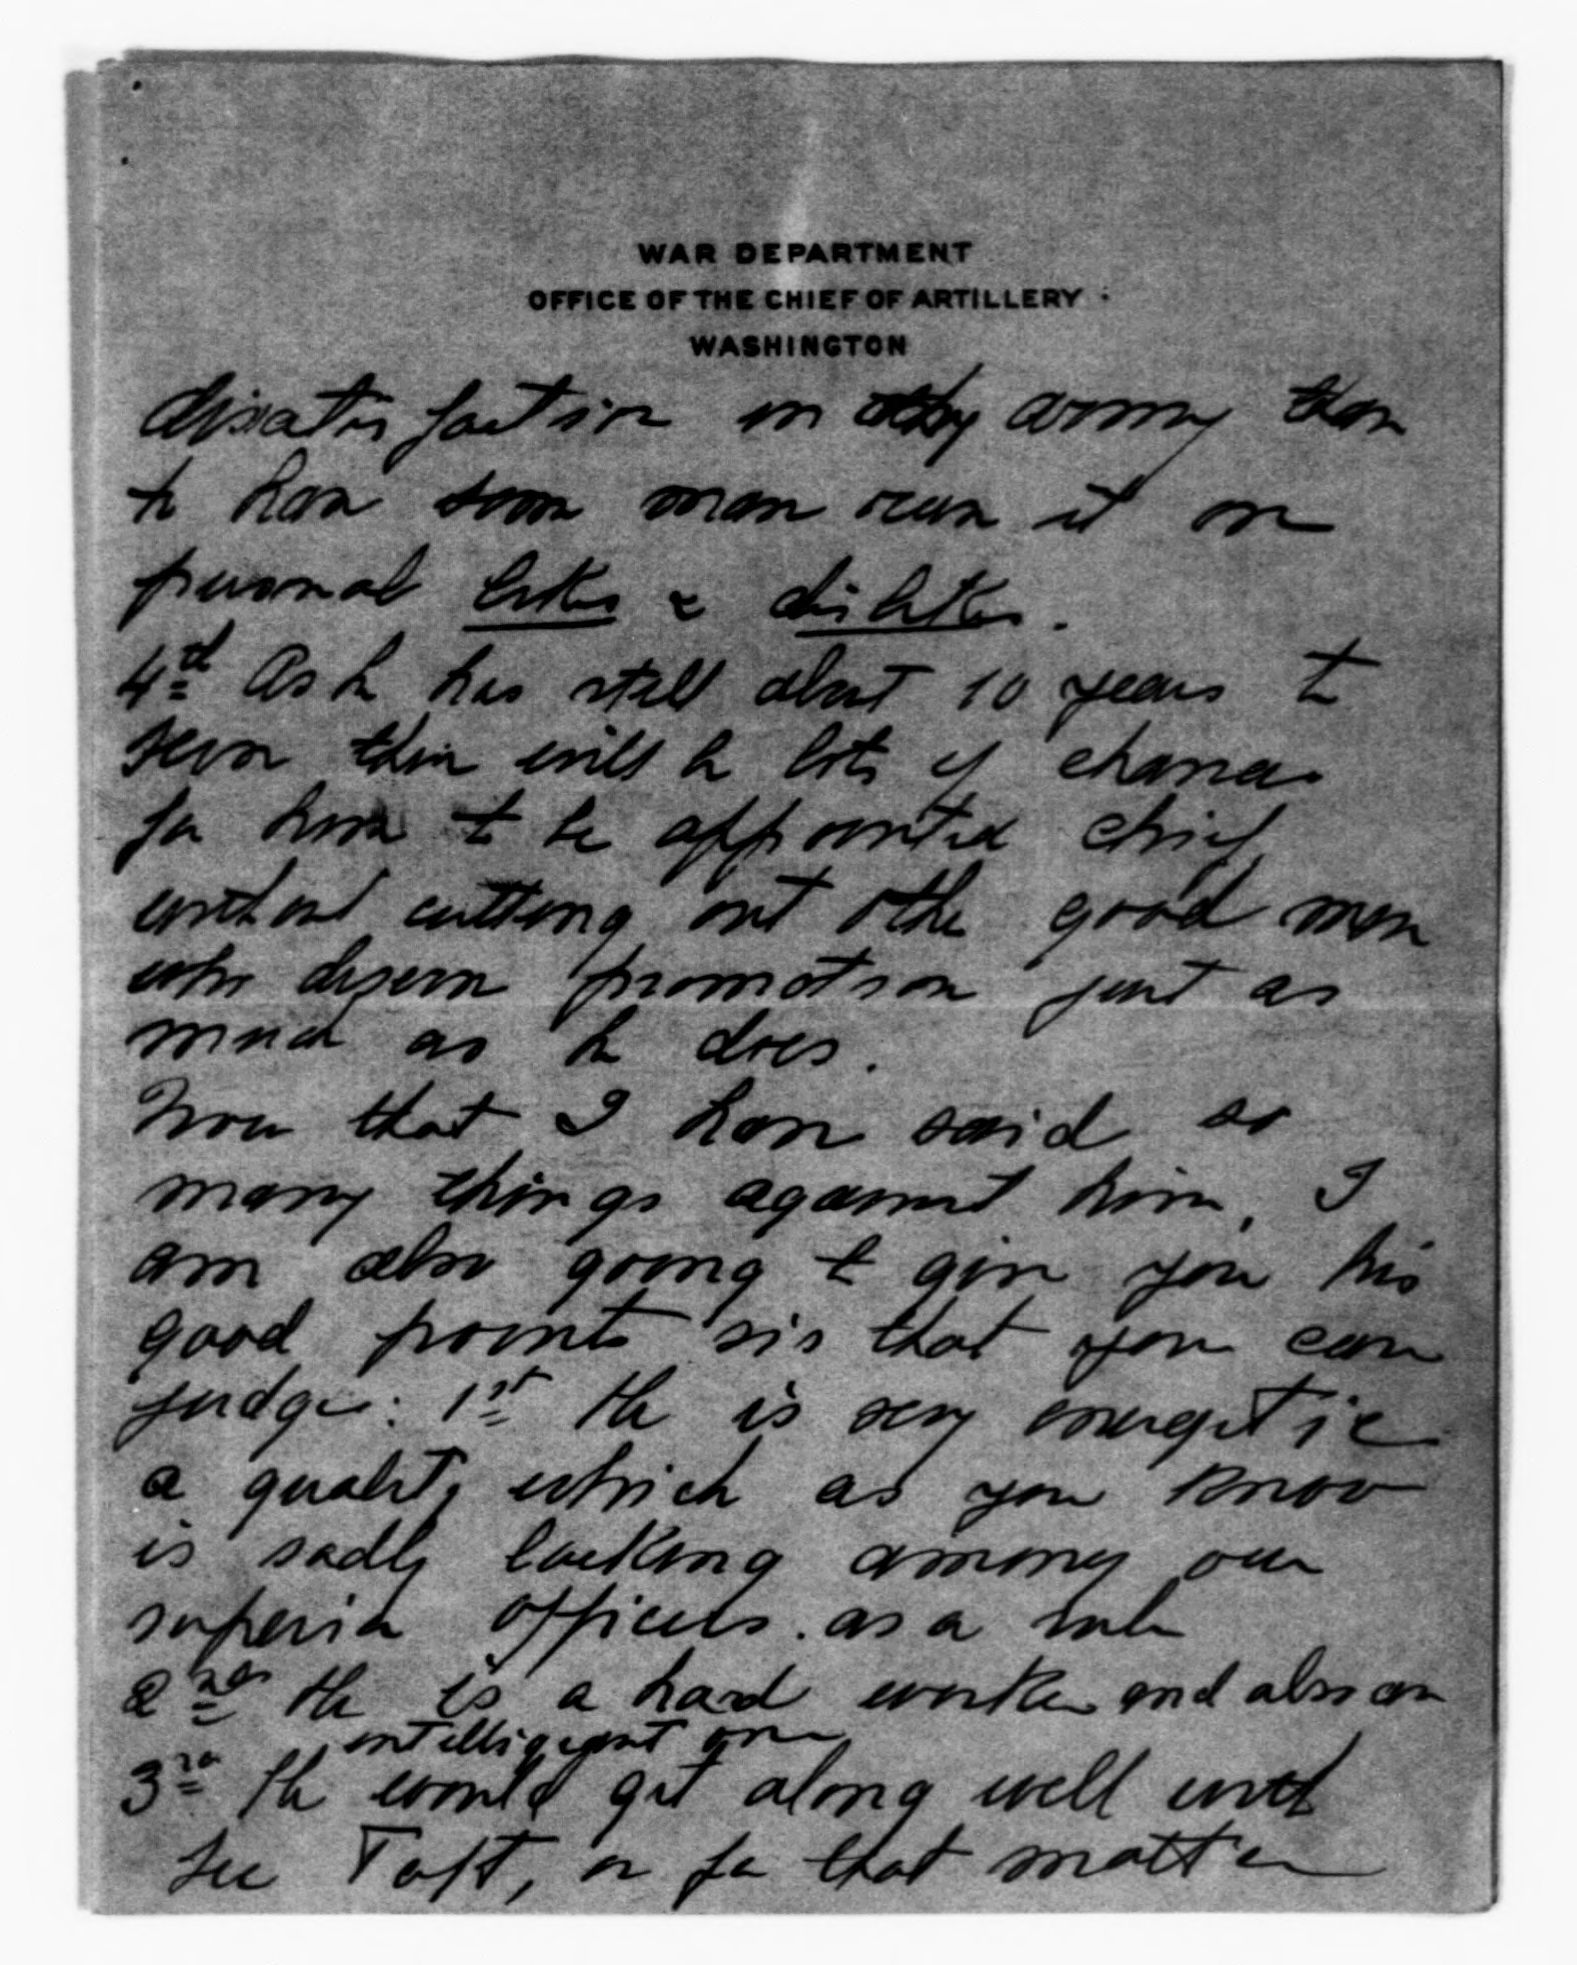 WAR DEPARTMENT
OFFICE OF THE CHIEF OF ARTILLERY
WASHINGTON
dissatisfaction in army than
to have some man run it on
personal likes & dislikes.
4rd As he has still about 10 years to
serve there will be lots of chances
for him to be appointed chief
without cutting out other good men
who deserve promotion just as
much as he does.
Now that I have said so
many things against him, I
am also going to give you his
good points so that you can
judge: 1st He is very energetic
a quality which as you know
is sadly lacking among our
superior officers. as a rule
2nd He is a hard worker and also an
intelligent one
3rd He would get along well with
Sec Taft, or for that matter